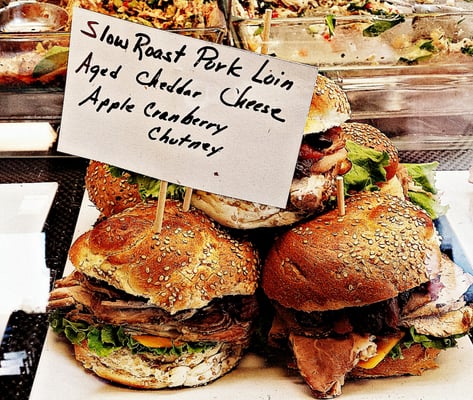 Slow Roast Pork Loin
Aged Cheddar Cheese
Apple Cranberry
Chutney